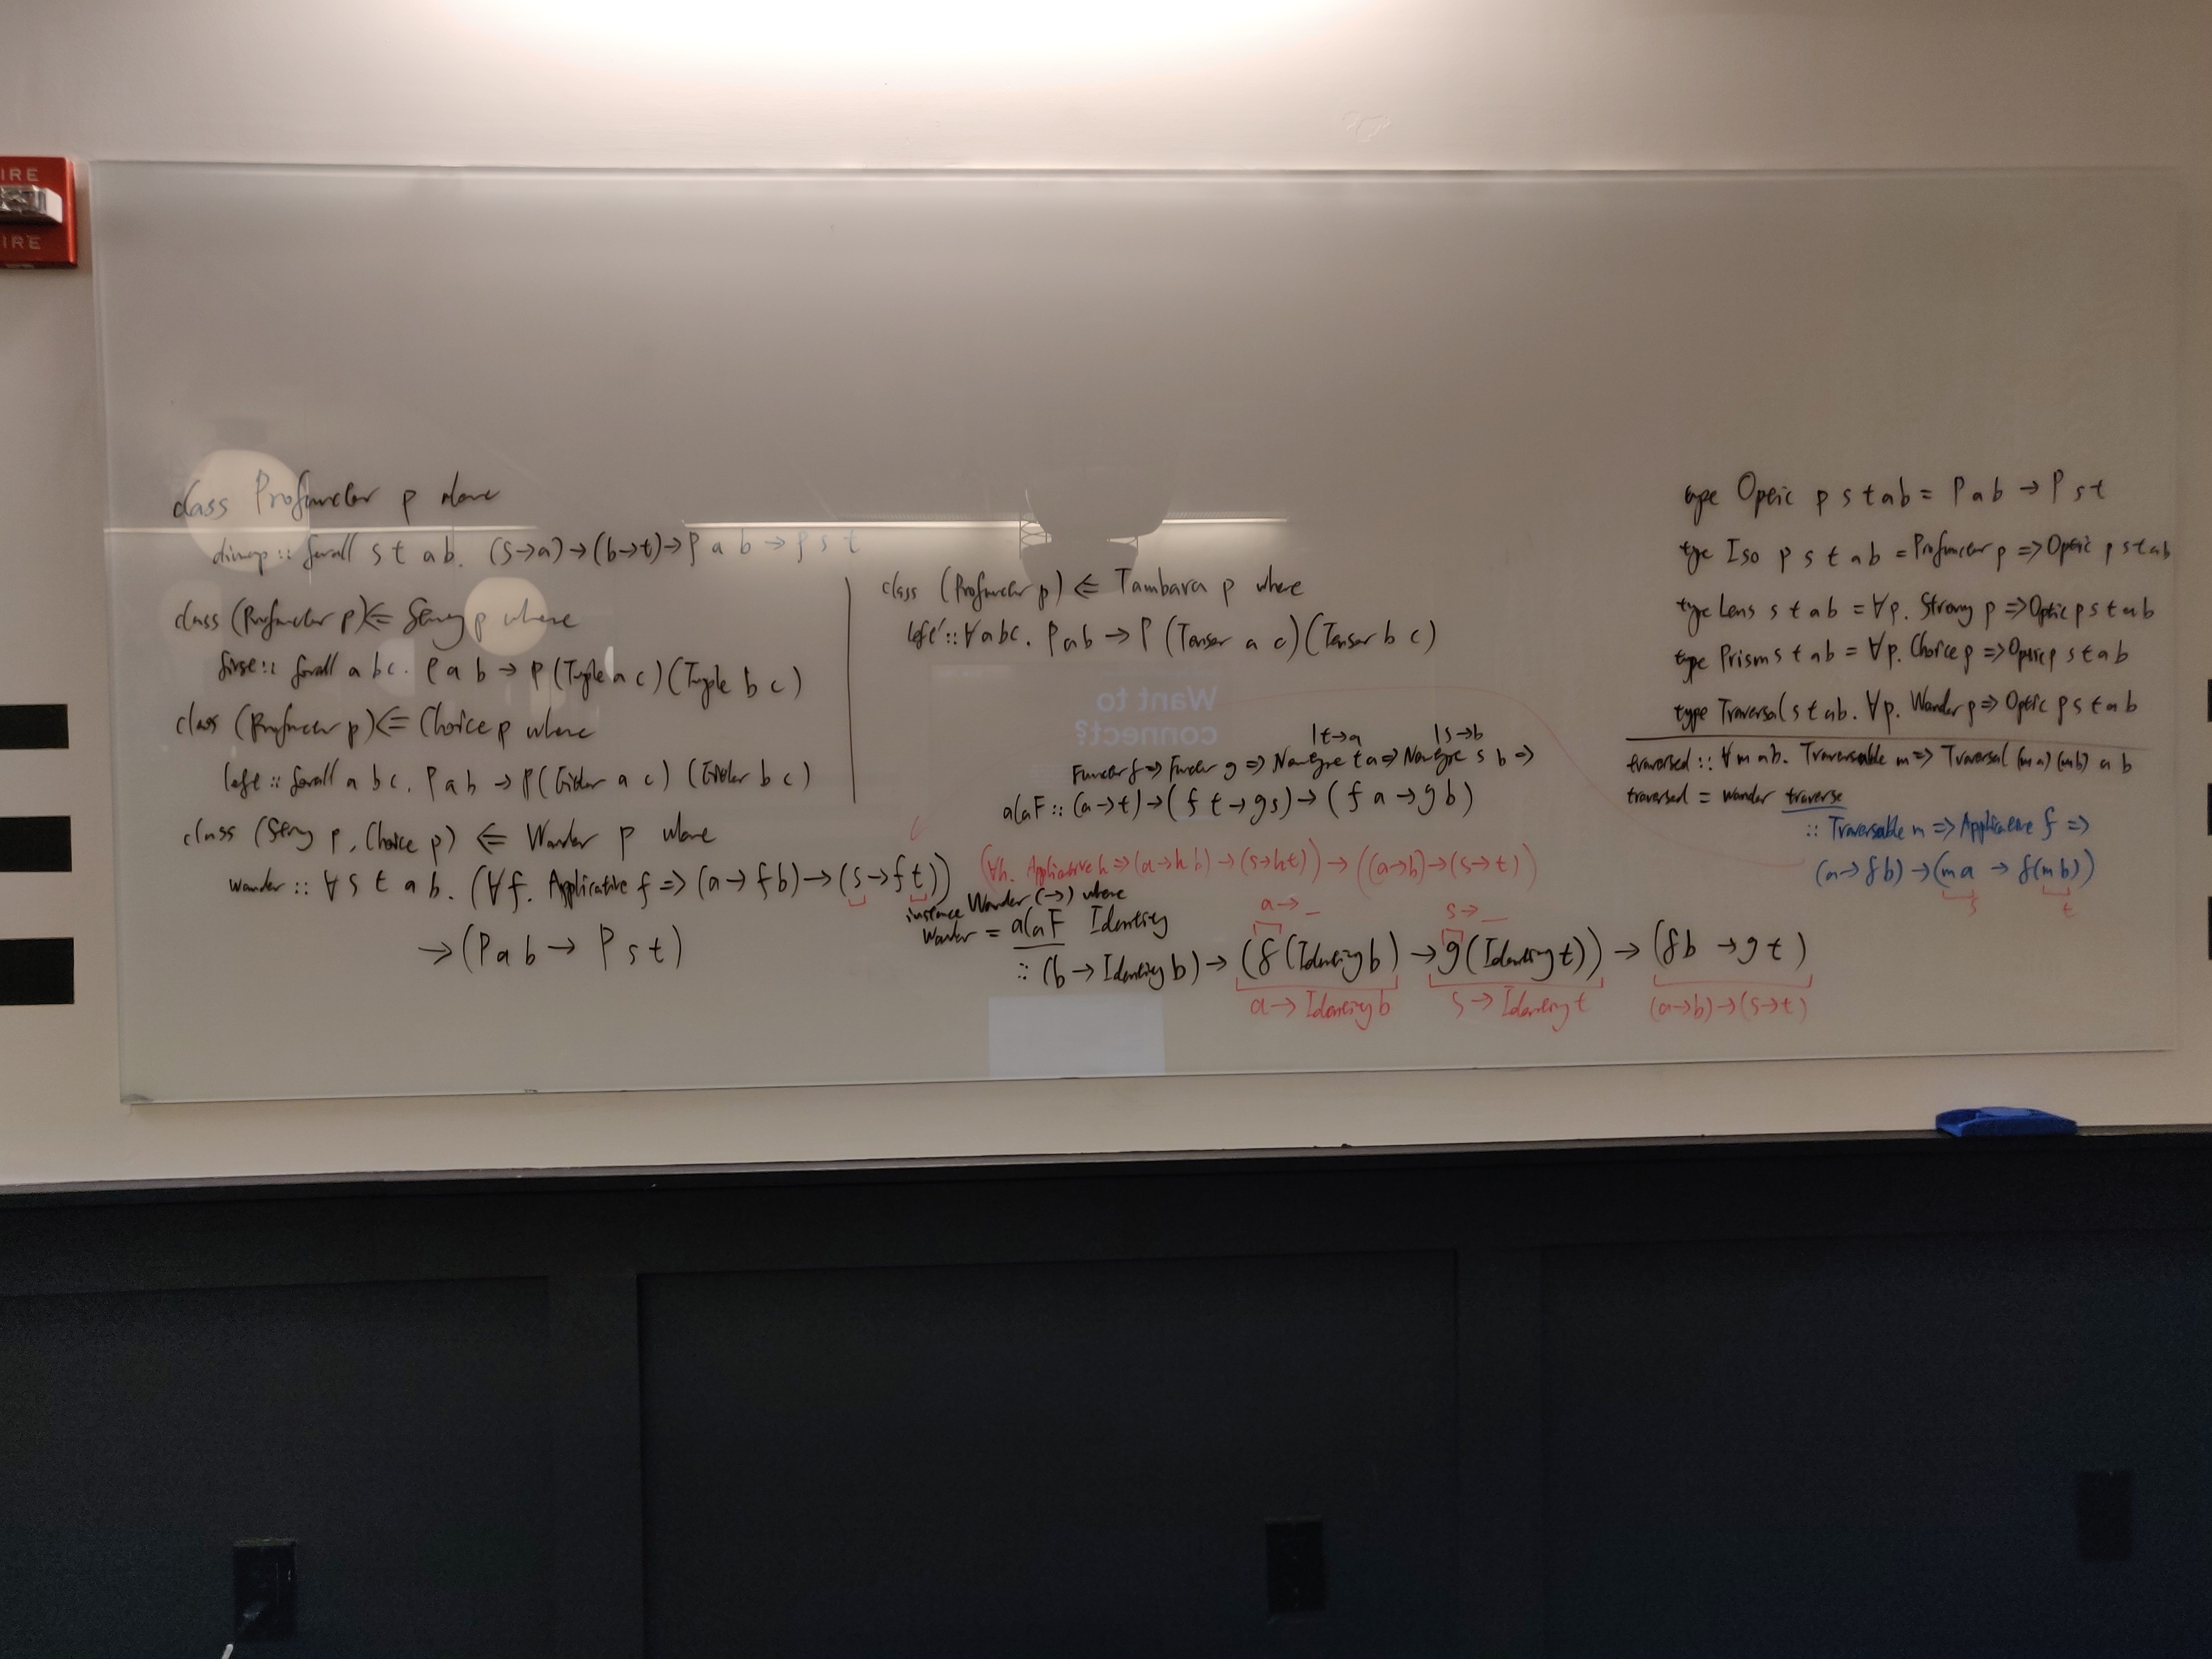 IRE
IRE
class Profunctor p where
dimap :: forall s t a b. (s→a)→(b→t)→p a b → p s t
class (Profunctor p) <= Strong p where
first :: forall a b c. p a b → p (Tuple a c) (Tuple b c)
class (Profunctor p) <= Choice p where
left :: forall a b c. p a b → p (Either a c) (Either b c)
class (Strong p, Choice p) <= Wander p where
wander :: ∀ s t a b. (∀f. Applicative f => (a→ f b)→(s→f t))
→(p a b → p s t)
class (Profunctor p) <= Tambara p where
left' :: ∀ a b c. p a b → p (Tensor a c) (Tensor b c)
Want to
connect?
|t→a |s→b
Functor f => Functor g => Newtype t a => Newtype s b =>
alaF :: (a→t)→(f t → g s)→(f a → g b)
(∀h. Applicative h => (a→h b)→(s→h t)) → ((a→b)→(s→t))
instance Wander (→) where
wander = alaF Identity
a→_ s→_
:: (b → Identity b)→ (f (Identity b) → g (Identity t)) → (f b → g t)
a→ Identity b s→ Identity t (a→b)→(s→t)
type Optic p s t a b = p a b → p s t
type Iso p s t a b = Profunctor p => Optic p s t a b
type Lens s t a b = ∀p. Strong p => Optic p s t a b
type Prism s t a b = ∀p. Choice p => Optic p s t a b
type Traversal s t a b. ∀p. Wander p => Optic p s t a b
traversed :: ∀ m a b. Traversable m => Traversal (m a) (m b) a b
traversed = wander traverse
:: Traversable m => Applicative f =>
(a→f b)→(m a → f(m b))
s t